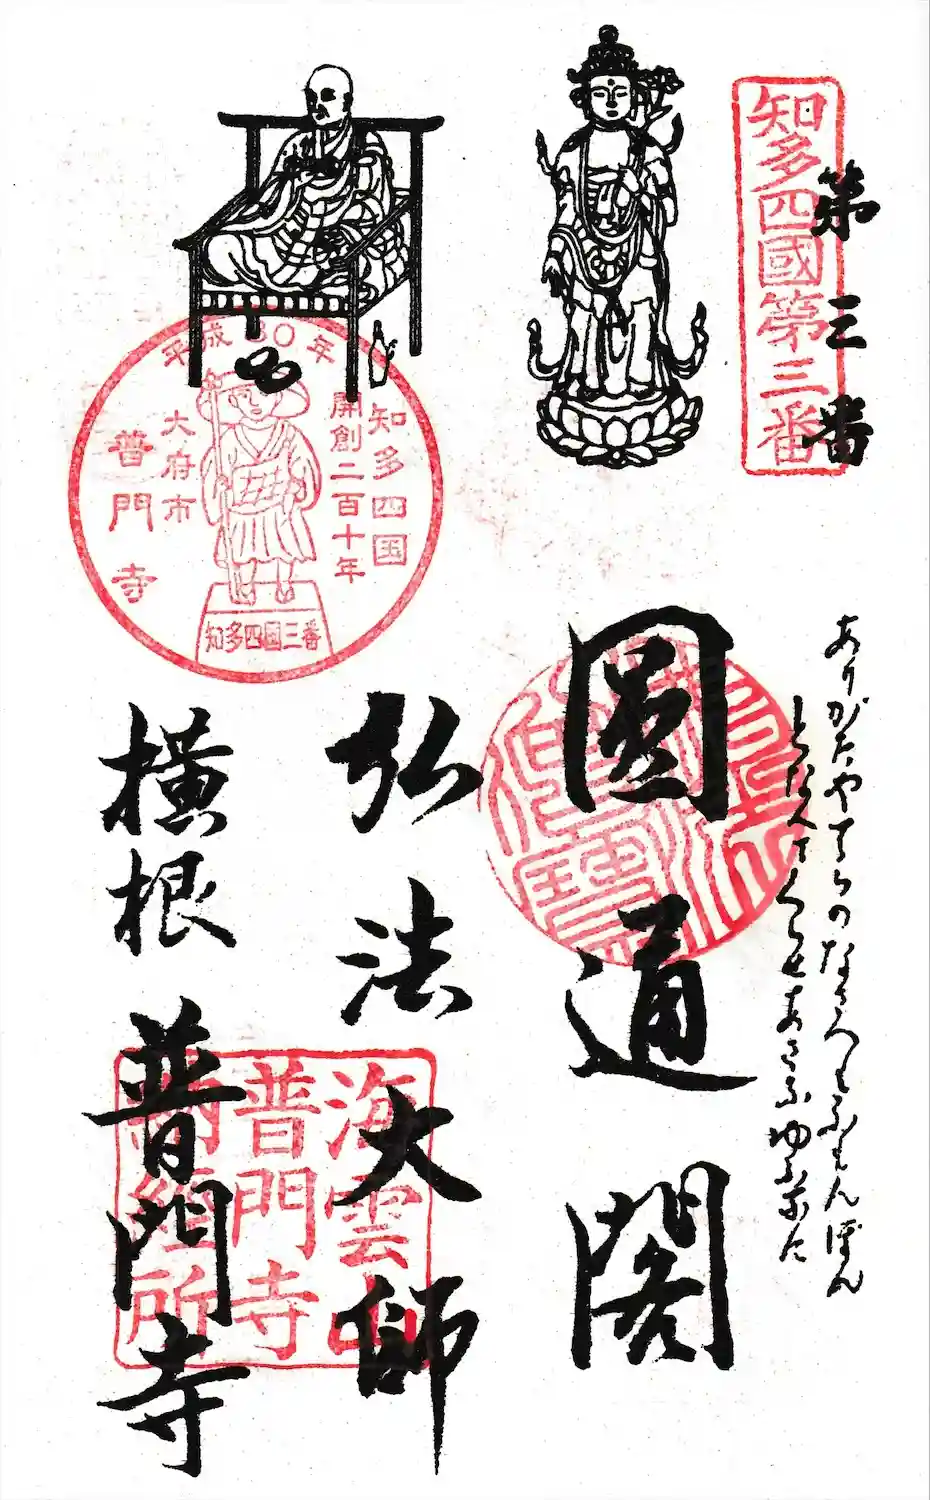 第三番
知多四國第三番
ありがたやすらのなさへもふもんぼん
となへてくらせあさなゆふなに
圓通閣
弘法大師
横根
普門寺
平成30年
知多四国
開創二百十年
大府市
普門寺
知多四国三番
海雲山
普門寺
納經所